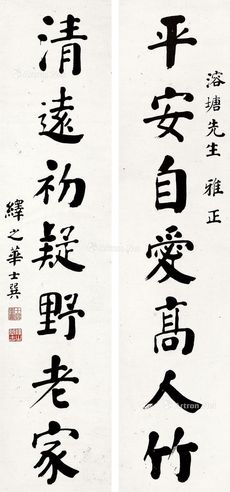 平安自愛高人竹
溶塘先生 雅正
清遠初疑野老家
繹之華士巽